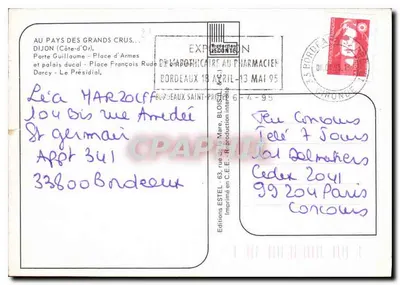 AU PAYS DES GRANDS CRUS...
DIJON (Côte-d'Or),
Porte Guillaume - Place d'Armes
et palais ducal - Place François Rude
Darcy - Le Présidial,
EXPOSITION
DE L'APOTHICAIRE AU PHARMACIEN
BORDEAUX 18 AVRIL-13 MAI 95
BORDEAUX SAINT-PROJET 6-4-95
Léa MARZOLFF
104 Bis rue Amédée
St germain
Appt 341
33800 Bordeaux
Editions ESTEL - 63, rue du Mare, BLOIS
Imprimé en C.E.E. - Reproduction interdite
Jeu Concours
Télé 7 Jours
101 Dalmatiens
Cedex 2041
99204 Paris
Concours
CARTE-PRECIEUSE